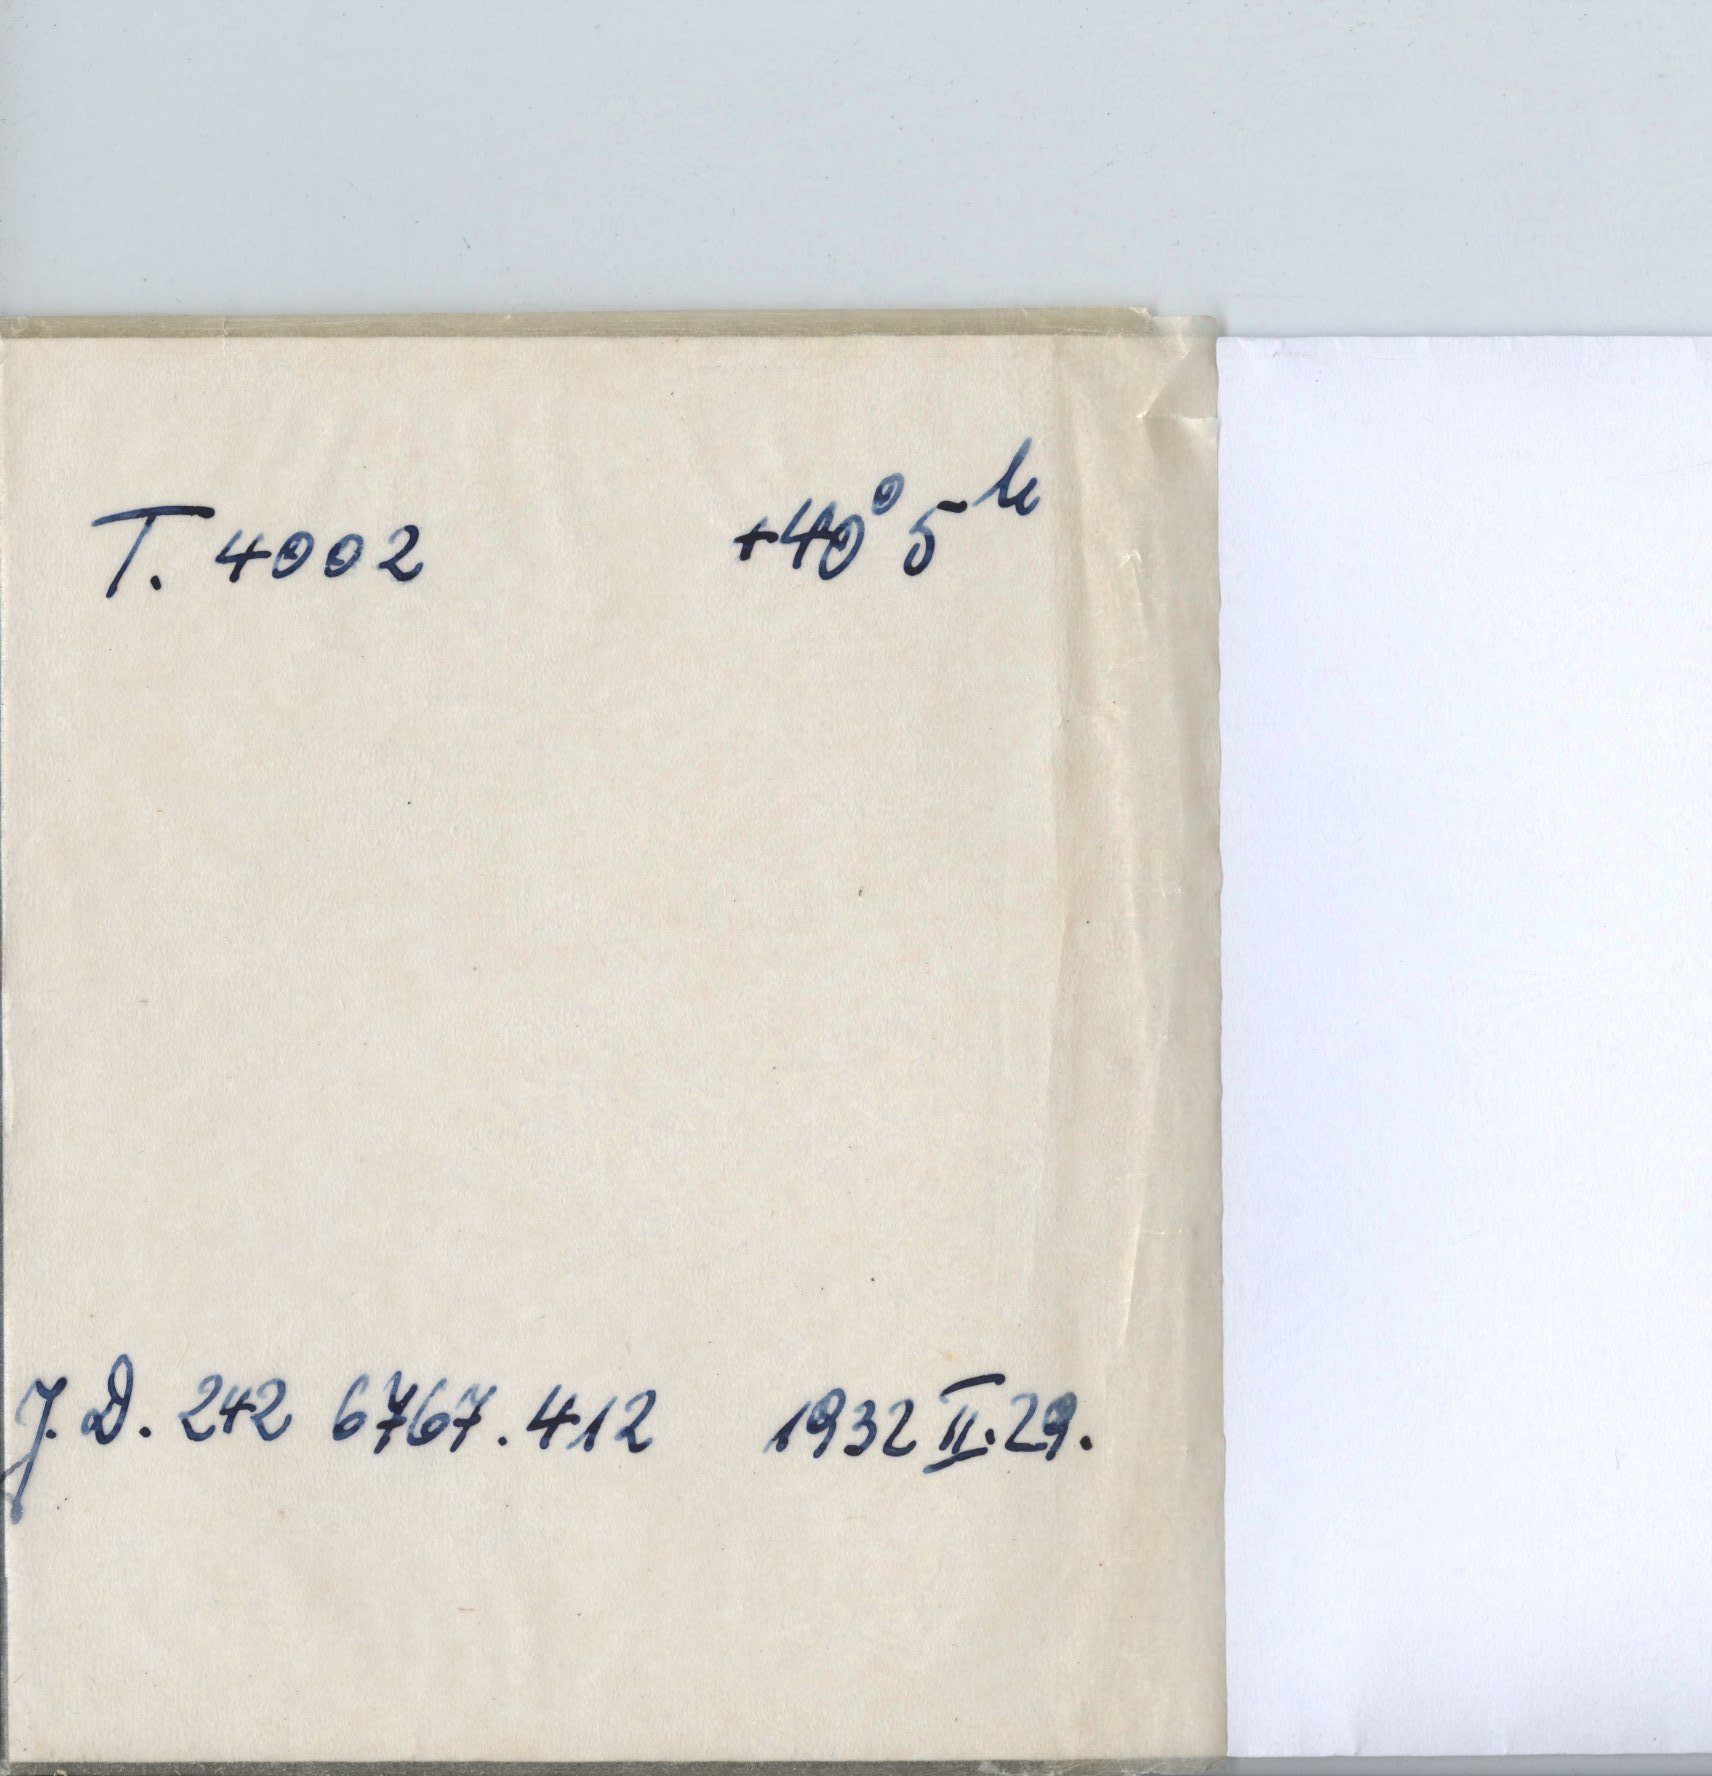 T. 4002 +40° 5h
J. D. 242 6767.412 1932 II. 29.